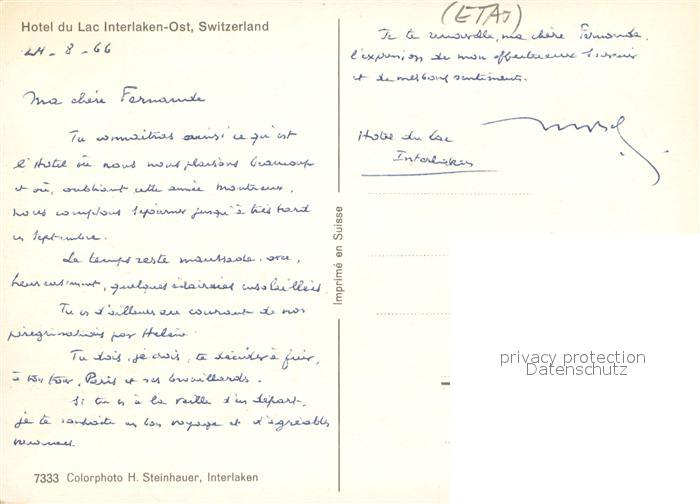 Hotel du Lac Interlaken-Ost, Switzerland
24 - 8 - 66
Ma chère Fernande
Tu connaitras ainsi ce qu'est
l'Hotel où nous nous plaisons beaucoup
et où, oubliant cette année Montreux,
nous comptons séjourner jusqu'à très tard
en Septembre.
Le temps reste maussade, avec,
heureusement, quelques éclaircies ensoleillées.
Tu es d'ailleurs au courant de nos
pérégrinations par Helène.
Tu dois, je crois, te décider à fuir,
à ton tour, Paris et ses brouillards.
Si tu es à la veille d'un départ,
je te souhaite un bon voyage et d'agréables
7333 Colorphoto H. Steinhauer, Interlaken
Imprimé en Suisse
(ETAT)
Je te renouvelle, ma chère Fernande,
l'expression de mon affectueux souvenir
et de mes bons sentiments.
Hotel du Lac
Interlaken
privacy protection
Datenschutz